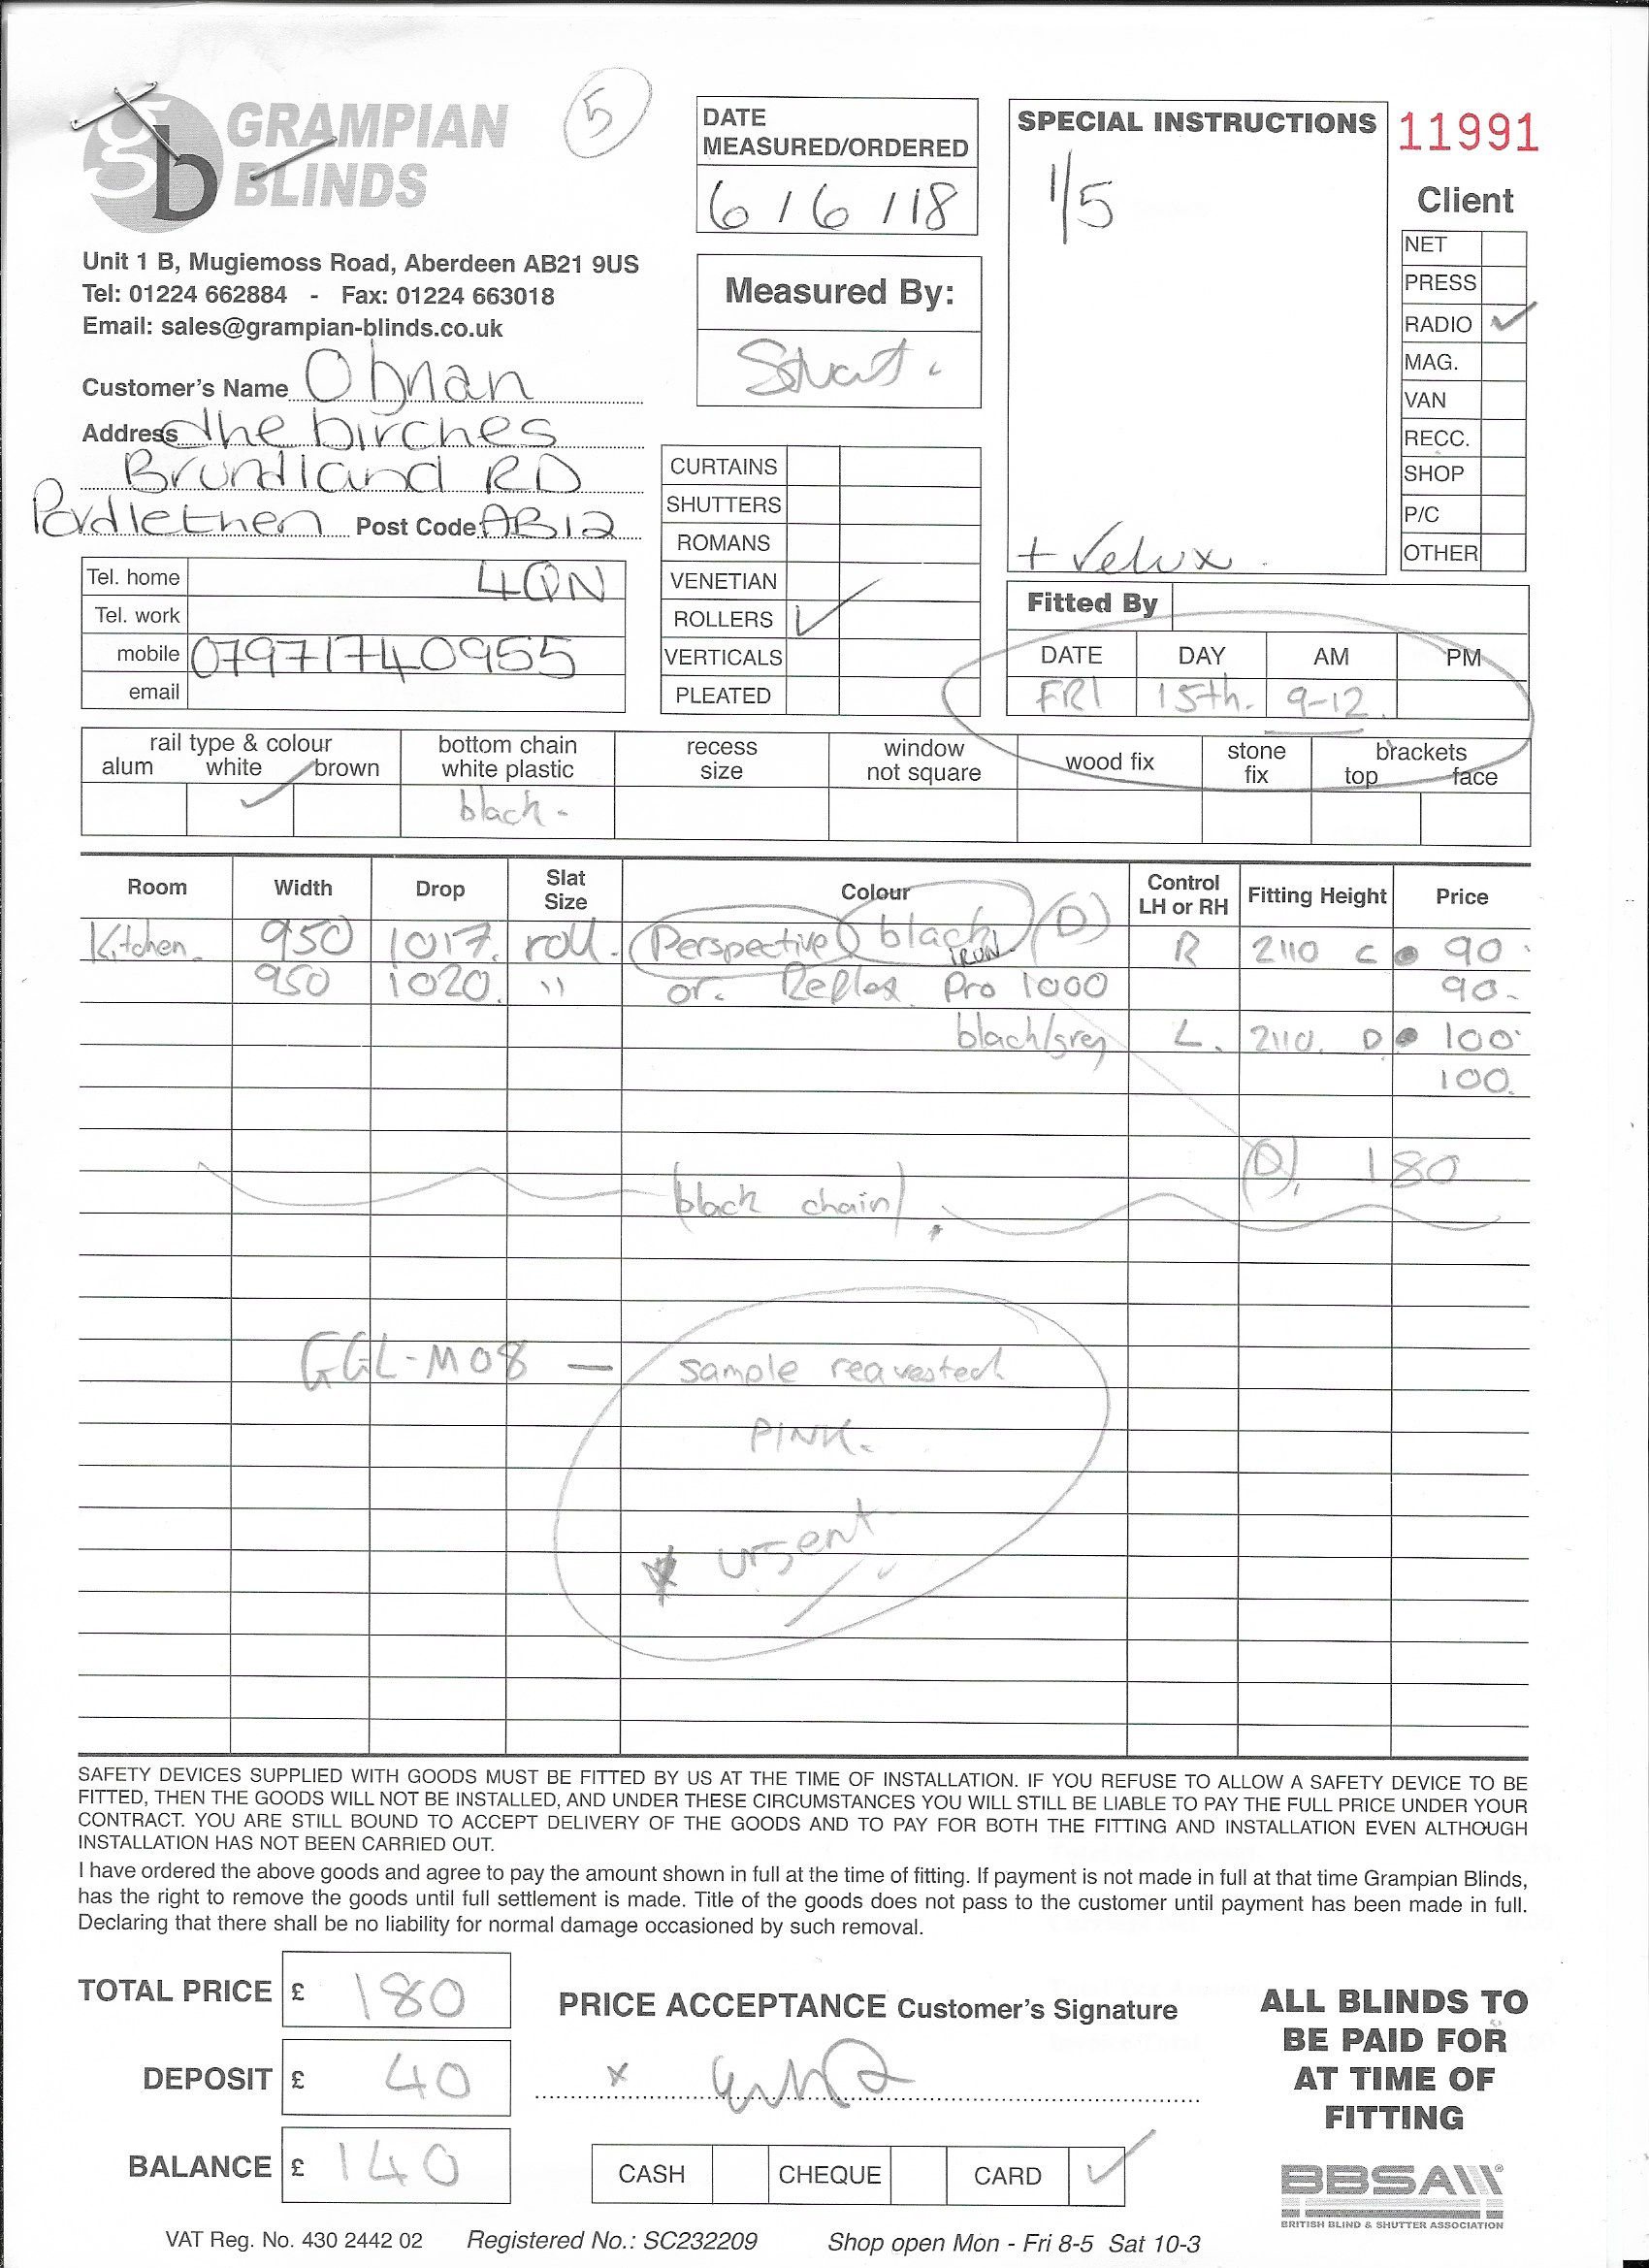 5
GRAMPIAN
BLINDS
gb
Unit 1 B, Mugiemoss Road, Aberdeen AB21 9US
Tel: 01224 662884 - Fax: 01224 663018
Email: sales@grampian-blinds.co.uk
Customer's Name Obrian
Address the birches
Brundland RD
Pordlethen Post Code AB12
Tel. home 4QN
Tel. work
mobile 07971740955
email
DATE
MEASURED/ORDERED
6/6/18
Measured By:
Stuart.
CURTAINS
SHUTTERS
ROMANS
VENETIAN
ROLLERS ✓
VERTICALS
PLEATED
SPECIAL INSTRUCTIONS
1/5
+ Velux.
11991
Client
NET
PRESS
RADIO ✓
MAG.
VAN
RECC.
SHOP
P/C
OTHER
Fitted By
DATE DAY AM PM
FRI 15th. 9-12.
rail type & colour
alum white brown
✓
bottom chain
white plastic
black.
recess
size
window
not square
wood fix
stone
fix
brackets
top face
Room Width Drop Slat Size Colour Control LH or RH Fitting Height Price
Kitchen. 950 1017. roll. Perspective black IRON (D) R 2110 C 90
950 1020. " or. Reflex Pro 1000 90.
black/grey L. 2110. D 100
100.
(D), 180
(black chain)
GGL-M08 — sample requested
PINK.
* urgent
SAFETY DEVICES SUPPLIED WITH GOODS MUST BE FITTED BY US AT THE TIME OF INSTALLATION. IF YOU REFUSE TO ALLOW A SAFETY DEVICE TO BE
FITTED, THEN THE GOODS WILL NOT BE INSTALLED, AND UNDER THESE CIRCUMSTANCES YOU WILL STILL BE LIABLE TO PAY THE FULL PRICE UNDER YOUR
CONTRACT. YOU ARE STILL BOUND TO ACCEPT DELIVERY OF THE GOODS AND TO PAY FOR BOTH THE FITTING AND INSTALLATION EVEN ALTHOUGH
INSTALLATION HAS NOT BEEN CARRIED OUT.
I have ordered the above goods and agree to pay the amount shown in full at the time of fitting. If payment is not made in full at that time Grampian Blinds,
has the right to remove the goods until full settlement is made. Title of the goods does not pass to the customer until payment has been made in full.
Declaring that there shall be no liability for normal damage occasioned by such removal.
TOTAL PRICE £ 180
DEPOSIT £ 40
BALANCE £ 140
PRICE ACCEPTANCE Customer's Signature
x
CASH CHEQUE CARD ✓
ALL BLINDS TO
BE PAID FOR
AT TIME OF
FITTING
BBSA
BRITISH BLIND & SHUTTER ASSOCIATION
VAT Reg. No. 430 2442 02 Registered No.: SC232209 Shop open Mon - Fri 8-5 Sat 10-3